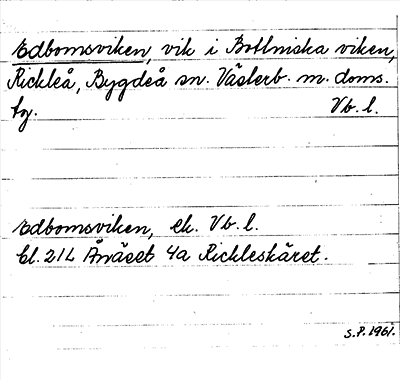 Edbomsviken, vik i Bottniska viken,
Rickleå, Bygdeå sn. Västerb. m. doms.
tg. Vb. l.
Edbomsviken, ek. Vb. l.
Bl. 21L Ånäset 4a Rickleskäret.
S.P. 1961.